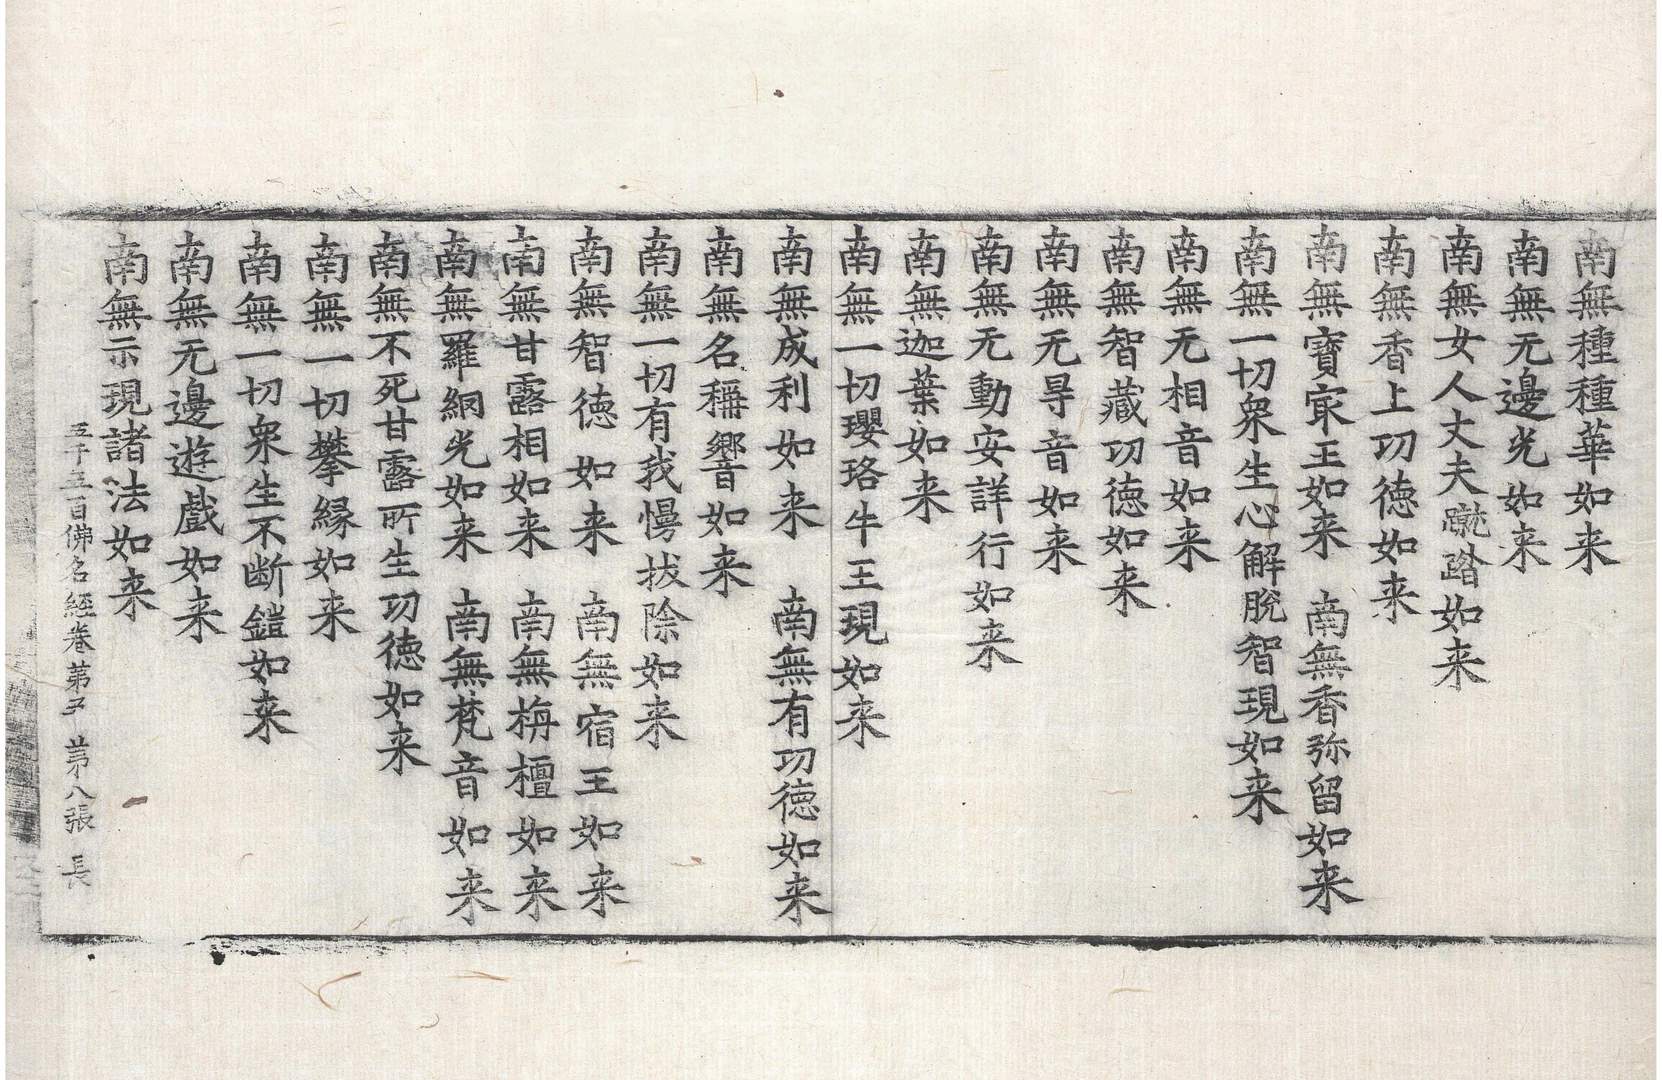 南無種種華如来
南無无邊光如来
南無女人丈夫蹴踏如来
南無香上功徳如来
南無寶㝡王如来　南無香弥留如来
南無一切衆生心解脫智現如来
南無无相音如来
南無智藏功徳如来
南無无㝵音如来
南無无動安詳行如来
南無迦葉如来
南無一切瓔珞牛王現如来
南無成利如来　南無有功徳如来
南無名稱響音如来
南無一切有我慢拔除如来
南無智徳如来　南無宿王如来
南無甘露相如来　南無栴檀如来
南無羅網光如来　南無梵音如来
南無不死甘露所生功徳如来
南無一切攀緣如来
南無一切衆生不断鎧如来
南無无邊遊戲如来
南無示現諸法如来
五千五百佛名經卷第五　第八張　長